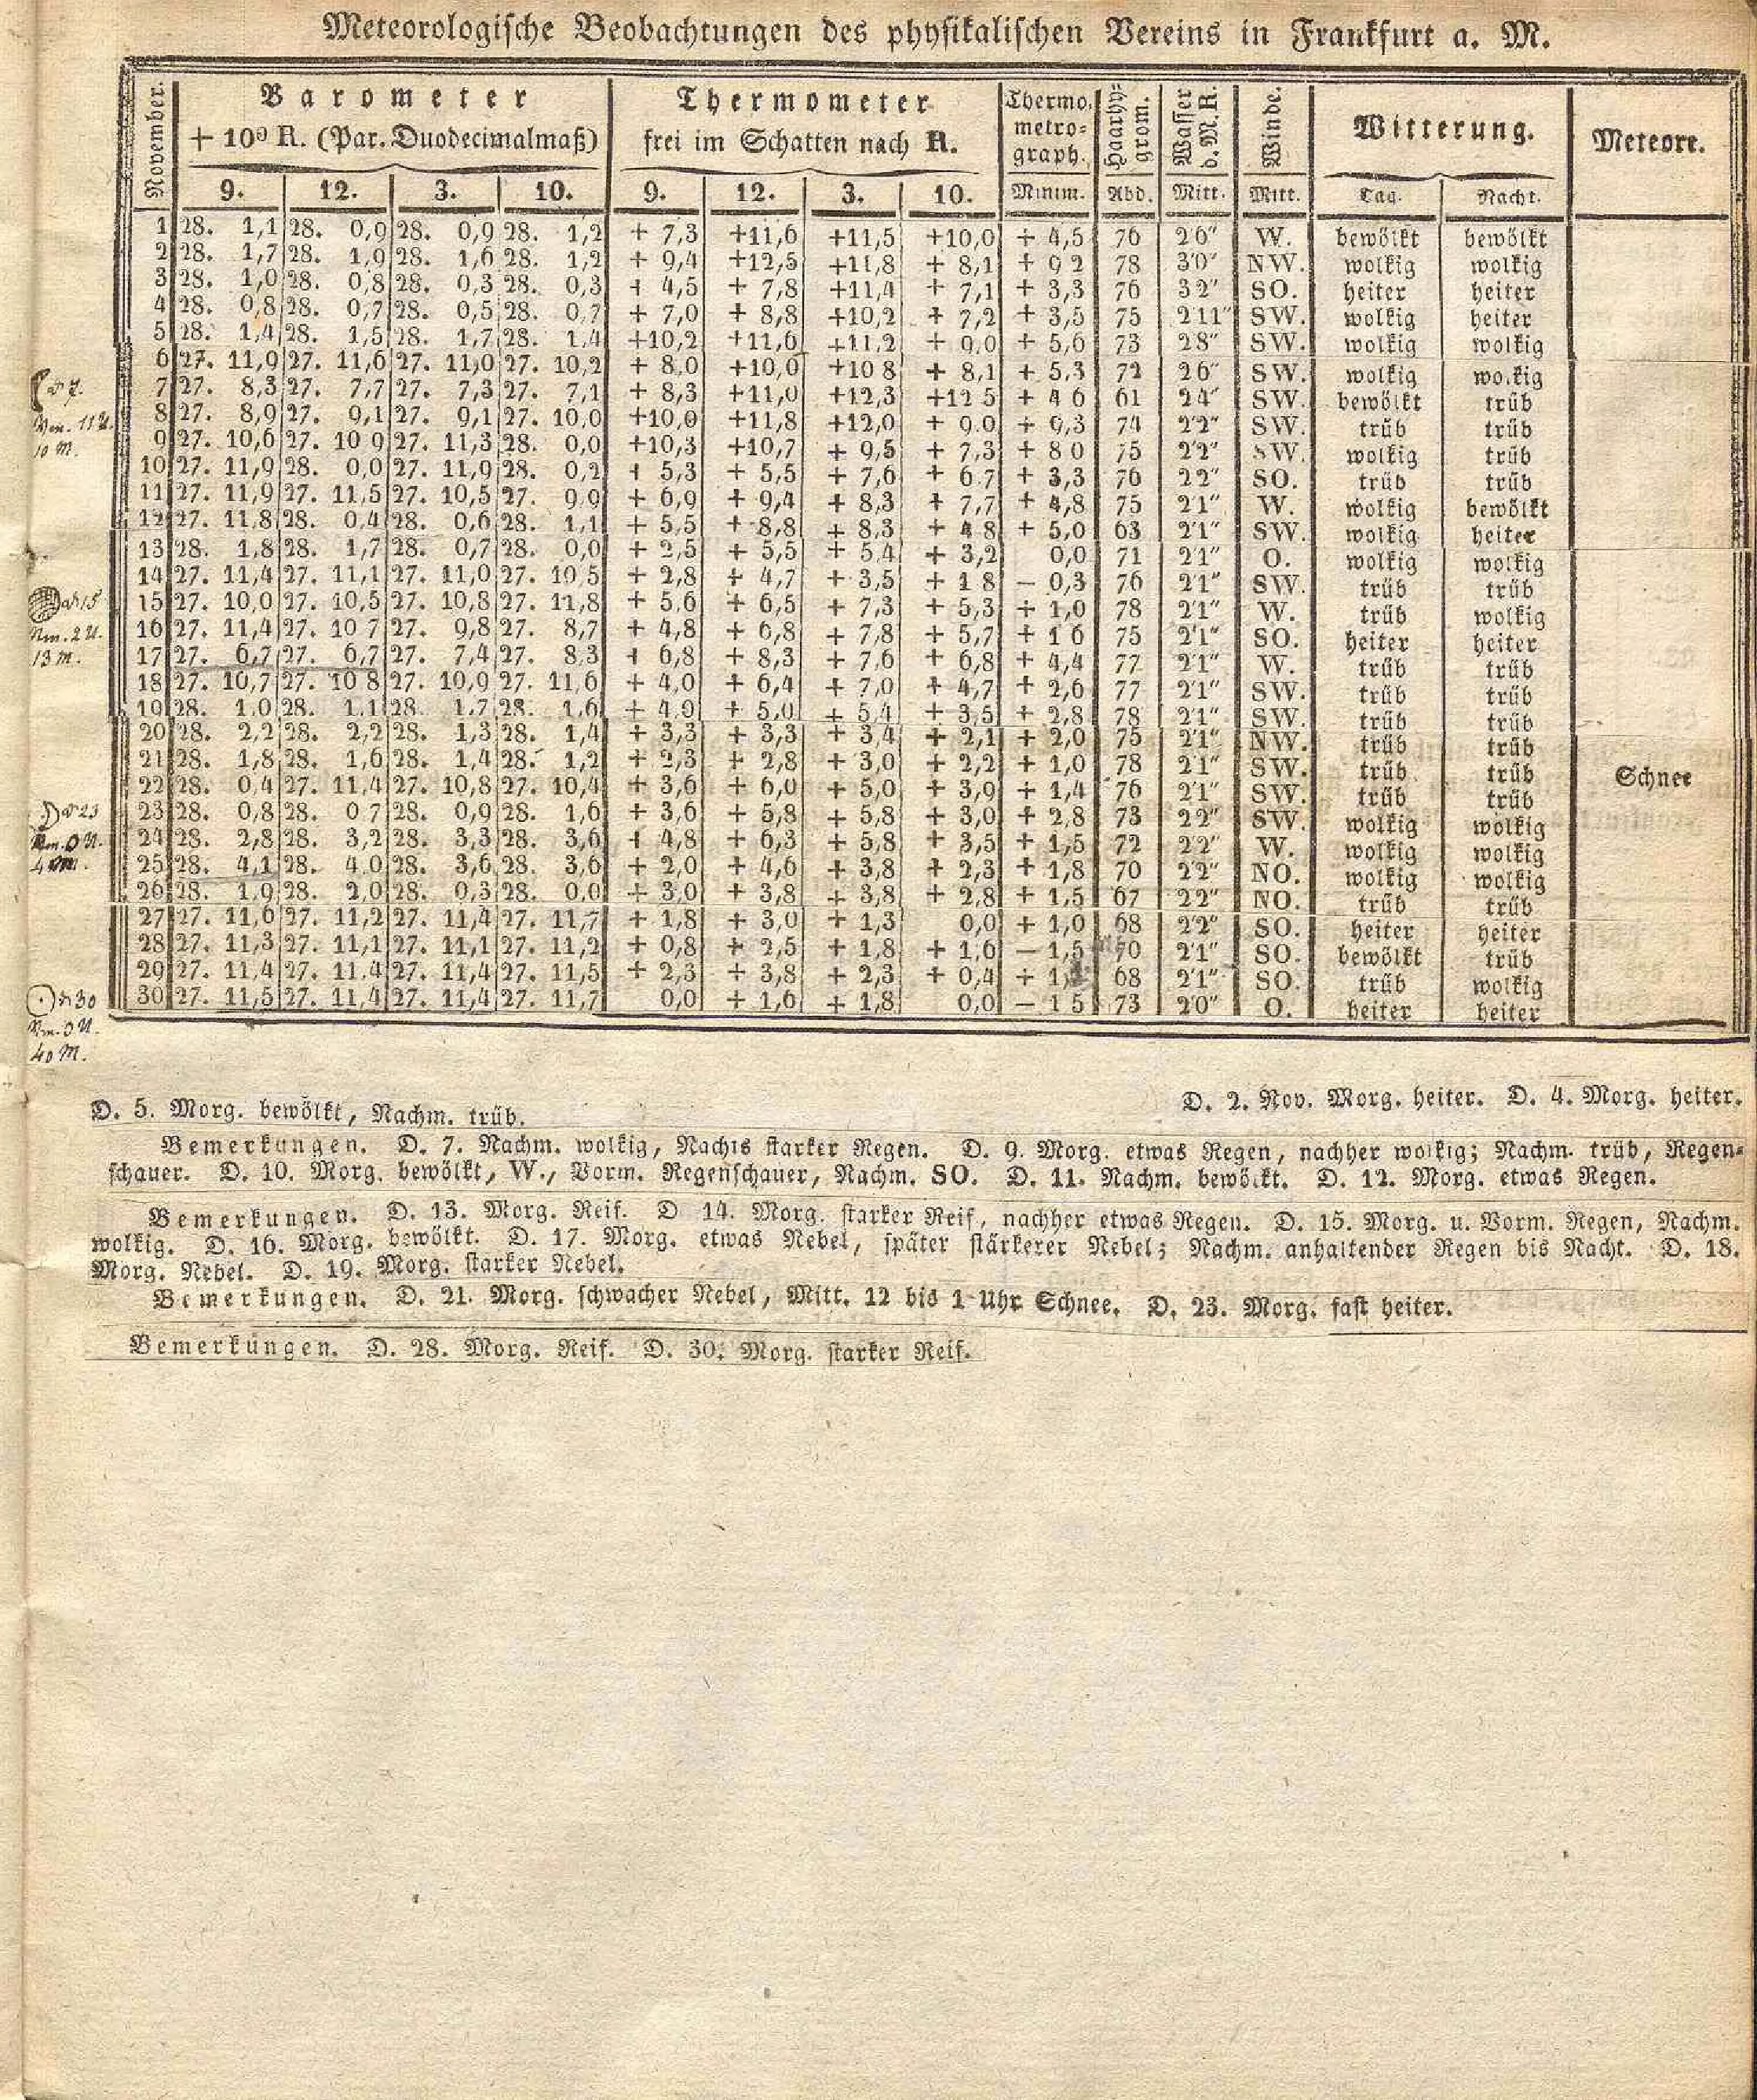 Meteorologische Beobachtungen des physikalischen Vereins in Frankfurt a. M.
November. Barometer Thermometer Thermometrograph. Haarhygrom. Wasser d. M. R. Winde. Witterung. Meteore.
+ 10⁰ R. (Par. Duodecimalmaß) frei im Schatten nach R.
9. 12. 3. 10. 9. 12. 3. 10. Minim. Abd. Mitt. Mitt. Tag. Nacht.
1 28. 1,1 28. 0,9 28. 0,9 28. 1,2 + 7,3 +11,6 +11,5 +10,0 + 4,5 76 2'6" W. bewölkt bewölkt
2 28. 1,7 28. 1,9 28. 1,6 28. 1,2 + 9,4 +12,5 +11,8 + 8,1 + 9 2 78 3'0" NW. wolkig wolkig
3 28. 1,0 28. 0,8 28. 0,3 28. 0,3 + 4,5 + 7,8 +11,4 + 7,1 + 3,3 76 3'2" SO. heiter heiter
4 28. 0,8 28. 0,7 28. 0,5 28. 0,7 + 7,0 + 8,8 +10,2 + 7,2 + 3,5 75 2'11" SW. wolkig heiter
5 28. 1,4 28. 1,5 28. 1,7 28. 1,4 +10,2 +11,6 +11,2 + 9,0 + 5,6 73 2'8" SW. wolkig wolkig
6 27. 11,9 27. 11,6 27. 11,0 27. 10,2 + 8,0 +10,0 +10 8 + 8,1 + 5,3 72 2'6" SW. wolkig wolkig
7 27. 8,3 27. 7,7 27. 7,3 27. 7,1 + 8,3 +11,0 +12,3 +12 5 + 4 6 61 2'4" SW. bewölkt trüb
8 27. 8,9 27. 9,1 27. 9,1 27. 10,0 +10,0 +11,8 +12,0 + 9,0 + 9,3 74 2'2" SW. trüb trüb
9 27. 10,6 27. 10 9 27. 11,3 28. 0,0 +10,3 +10,7 + 9,5 + 7,3 + 8 0 75 2'2" SW. wolkig trüb
10 27. 11,9 28. 0,0 27. 11,9 28. 0,2 + 5,3 + 5,5 + 7,6 + 6 7 + 3,3 76 2'2" SO. trüb trüb
11 27. 11,9 27. 11,5 27. 10,5 27. 9,9 + 6,9 + 9,4 + 8,3 + 7,7 + 4,8 75 2'1" W. wolkig bewölkt
12 27. 11,8 28. 0,4 28. 0,6 28. 1,1 + 5,5 + 8,8 + 8,3 + 4 8 + 5,0 63 2'1" SW. wolkig heiter
13 28. 1,8 28. 1,7 28. 0,7 28. 0,0 + 2,5 + 5,5 + 5,4 + 3,2 0,0 71 2'1" O. wolkig wolkig
14 27. 11,4 27. 11,1 27. 11,0 27. 10,5 + 2,8 + 4,7 + 3,5 + 1 8 − 0,3 76 2'1" SW. trüb trüb
15 27. 10,0 27. 10,5 27. 10,8 27. 11,8 + 5,6 + 6,5 + 7,3 + 5,3 + 1,0 78 2'1" W. trüb wolkig
16 27. 11,4 27. 10 7 27. 9,8 27. 8,7 + 4,8 + 6,8 + 7,8 + 5,7 + 1 6 75 2'1" SO. heiter heiter
17 27. 6,7 27. 6,7 27. 7,4 27. 8,3 + 6,8 + 8,3 + 7,6 + 6,8 + 4,4 77 2'1" W. trüb trüb
18 27. 10,7 27. 10 8 27. 10,9 27. 11,6 + 4,0 + 6,4 + 7,0 + 4,7 + 2,6 77 2'1" SW. trüb trüb
19 28. 1,0 28. 1,1 28. 1,7 28. 1,6 + 4,9 + 5,0 + 5,4 + 3,5 + 2,8 78 2'1" SW. trüb trüb
20 28. 2,2 28. 2,2 28. 1,3 28. 1,4 + 3,3 + 3,3 + 3,4 + 2,1 + 2,0 75 2'1" NW. trüb trüb
21 28. 1,8 28. 1,6 28. 1,4 28. 1,2 + 2,3 + 2,8 + 3,0 + 2,2 + 1,0 78 2'1" SW. trüb trüb Schnee
22 28. 0,4 27. 11,4 27. 10,8 27. 10,4 + 3,6 + 6,0 + 5,0 + 3,9 + 1,4 76 2'1" SW. trüb trüb
23 28. 0,8 28. 0 7 28. 0,9 28. 1,6 + 3,6 + 5,8 + 5,8 + 3,0 + 2,8 73 2'2" SW. wolkig wolkig
24 28. 2,8 28. 3,2 28. 3,3 28. 3,6 + 4,8 + 6,3 + 5,8 + 3,5 + 1,5 72 2'2" W. wolkig wolkig
25 28. 4,1 28. 4,0 28. 3,6 28. 3,6 + 2,0 + 4,6 + 3,8 + 2,3 + 1,8 70 2'2" NO. wolkig wolkig
26 28. 1,9 28. 2,0 28. 0,3 28. 0,0 + 3,0 + 3,8 + 3,8 + 2,8 + 1,5 67 2'2" NO. trüb trüb
27 27. 11,6 27. 11,2 27. 11,4 27. 11,7 + 1,8 + 3,0 + 1,3 0,0 + 1,0 68 2'2" SO. heiter heiter
28 27. 11,3 27. 11,1 27. 11,1 27. 11,2 + 0,8 + 2,5 + 1,8 + 1,6 − 1,5 70 2'1" SO. bewölkt trüb
29 27. 11,4 27. 11,4 27. 11,4 27. 11,5 + 2,3 + 3,8 + 2,3 + 0,4 68 2'1" SO. trüb wolkig
30 27. 11,5 27. 11,4 27. 11,4 27. 11,7 0,0 + 1,6 + 1,8 0,0 − 1 5 73 2'0" O. heiter heiter
7.
Vm. 11 U.
10 M.
15
Nm. 2 U.
13 M.
23
Nm. 0 U.
4 M.
30
Nm. 0 U.
40 M.
D. 2. Nov. Morg. heiter. D. 4. Morg. heiter.
D. 5. Morg. bewölkt, Nachm. trüb.
Bemerkungen. D. 7. Nachm. wolkig, Nachts starker Regen. D. 9. Morg. etwas Regen, nachher wolkig; Nachm. trüb, Regen-
schauer. D. 10. Morg. bewölkt, W., Vorm. Regenschauer, Nachm. SO. D. 11. Nachm. bewölkt. D. 12. Morg. etwas Regen.
Bemerkungen. D. 13. Morg. Reif. D 14. Morg. starker Reif, nachher etwas Regen. D. 15. Morg. u. Vorm. Regen, Nachm.
wolkig. D. 16. Morg. bewölkt. D. 17. Morg. etwas Nebel, später stärkerer Nebel; Nachm. anhaltender Regen bis Nacht. D. 18.
Morg. Nebel. D. 19. Morg. starker Nebel.
Bemerkungen. D. 21. Morg. schwacher Nebel, Mitt. 12 bis 1 Uhr Schnee. D. 23. Morg. fast heiter.
Bemerkungen. D. 28. Morg. Reif. D. 30. Morg. starker Reif.